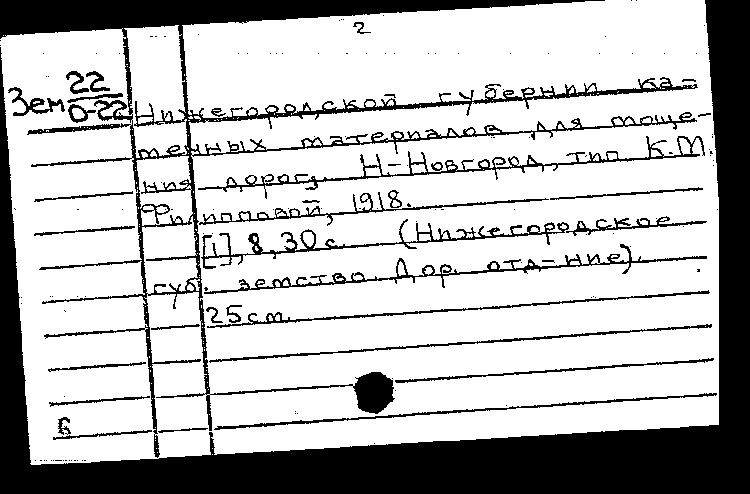 2
Зем 22
О-22
Нижегородской губернии ка-
менных материалов для моще-
ния дорог. Н.-Новгород, тип К.М.
Филипповой, 1918.
[1], 8, 30 с. (Нижегородское
губ. земство. Дор. отд-ние).
25 см.
Б